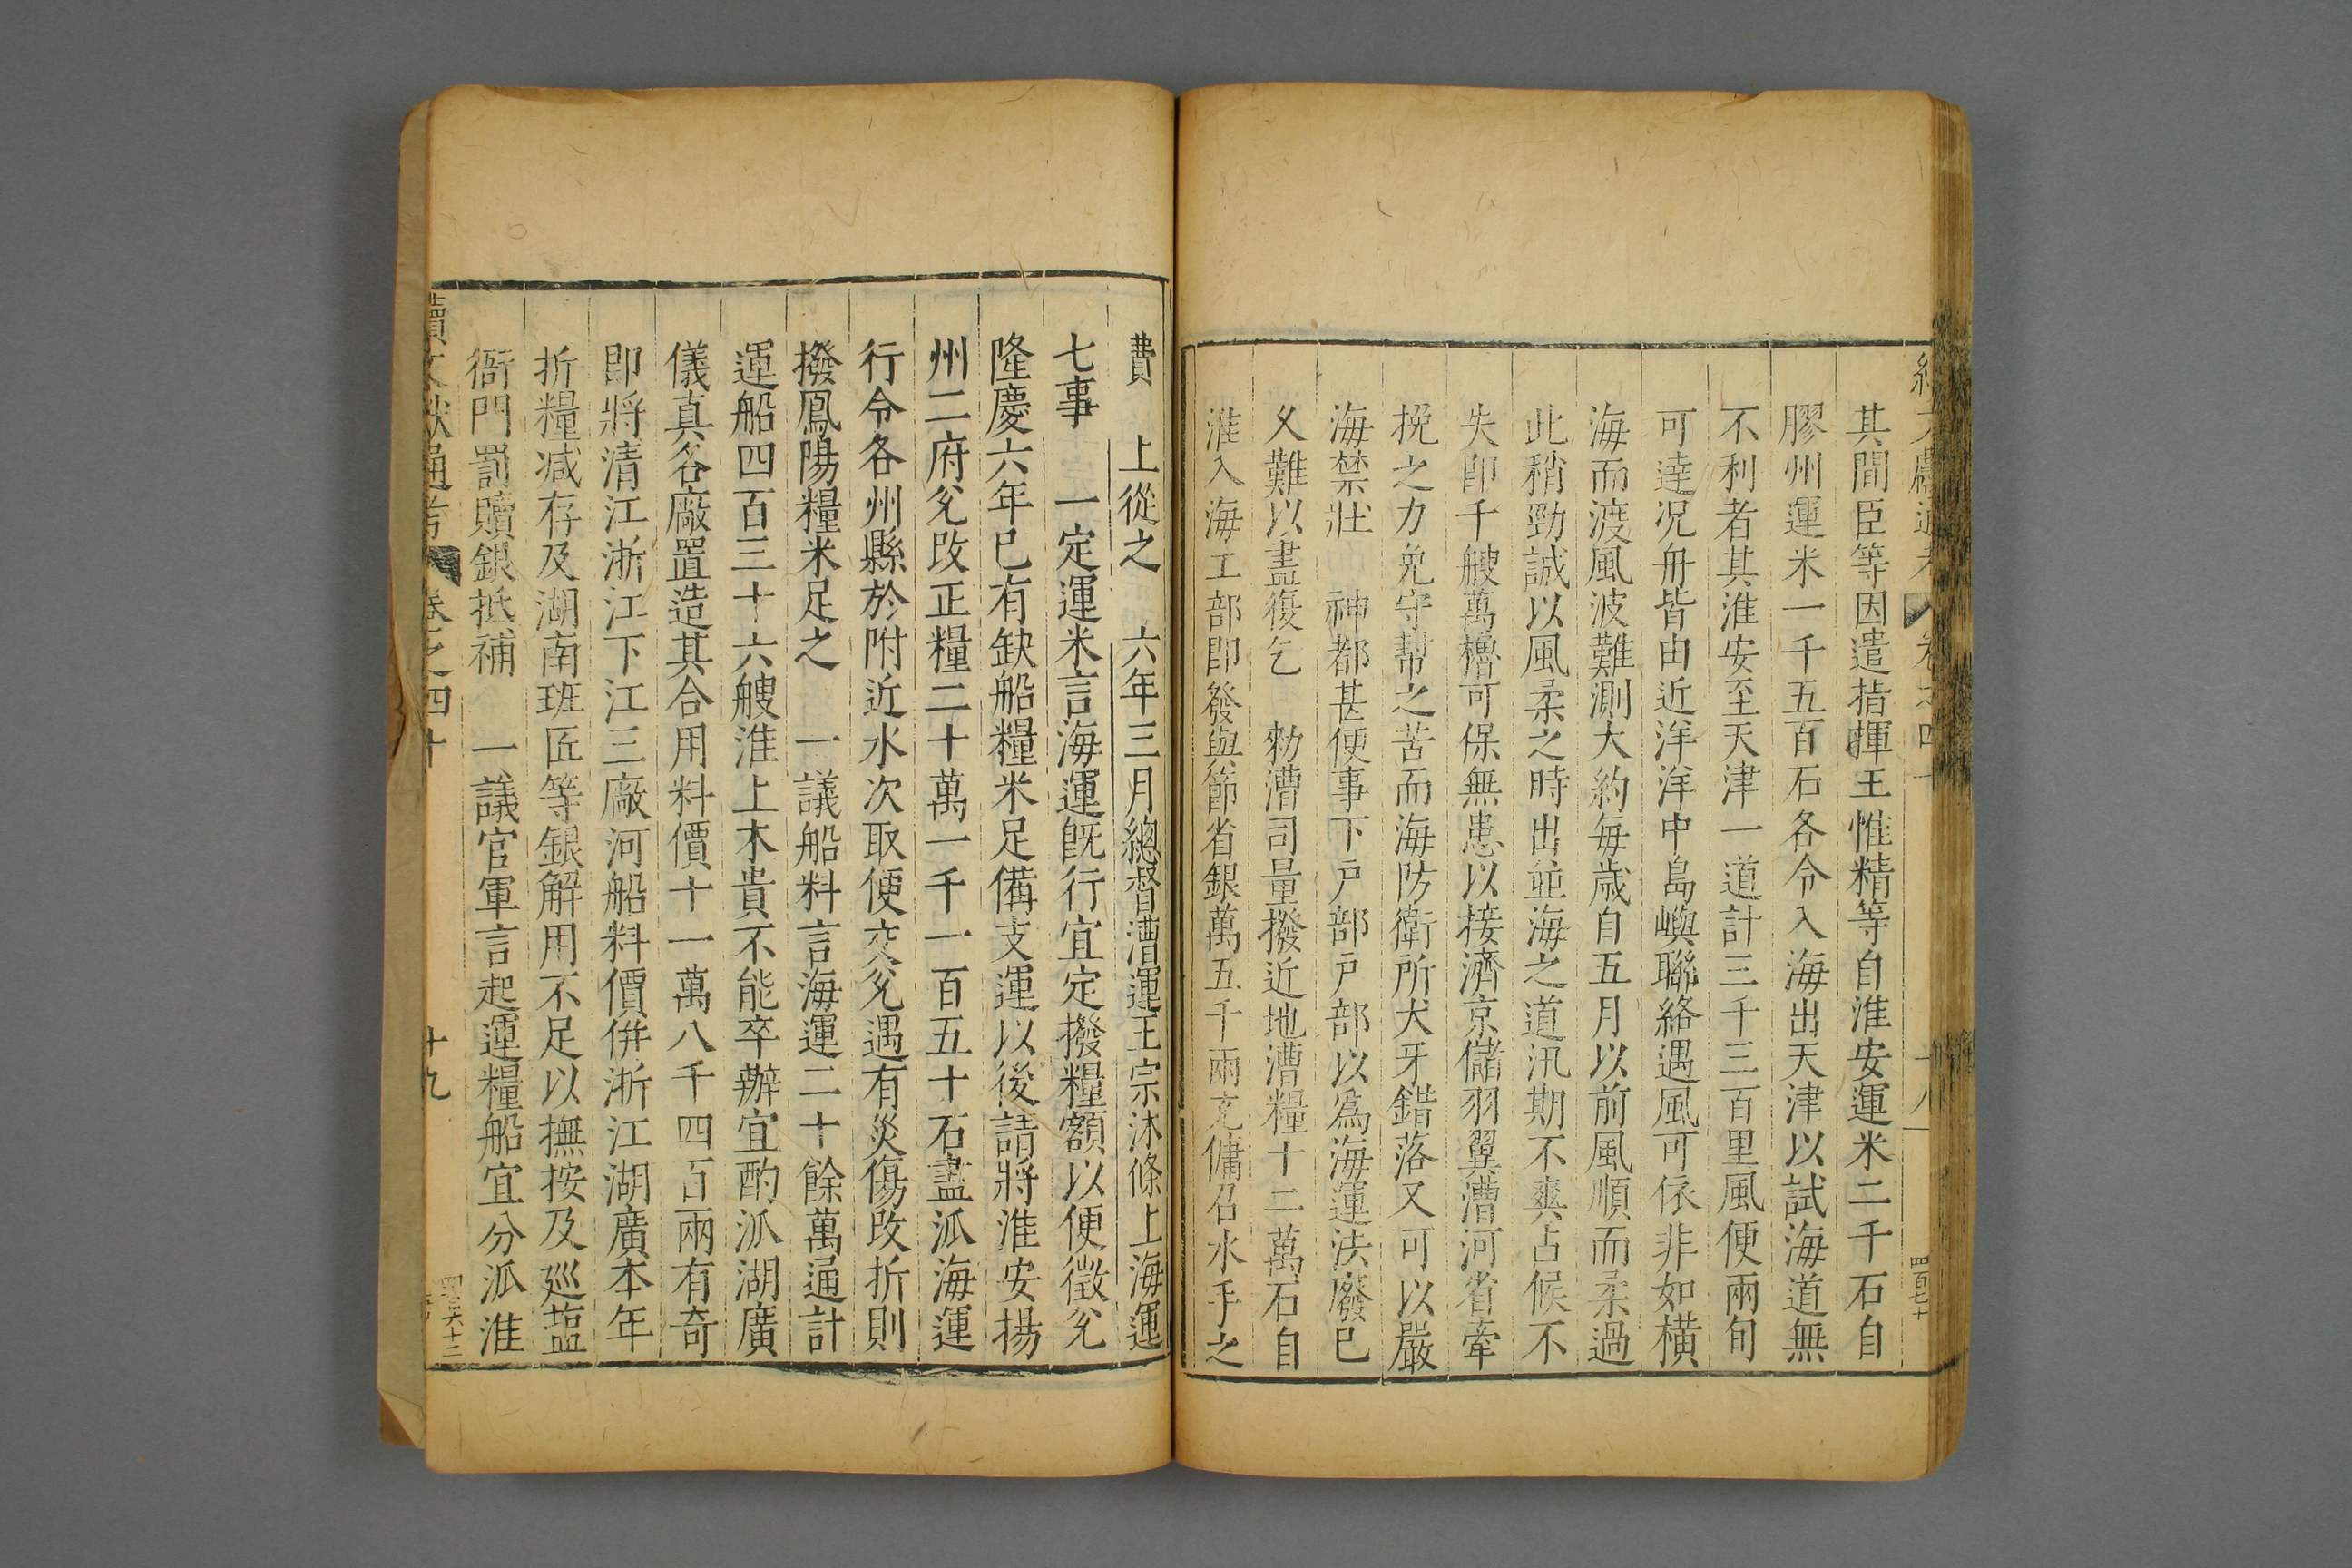 續文獻通考 卷之四十 十八 四百七十
其間臣等因遣指揮王惟精等自淮安運米二千石自
膠州運米一千五百石各令入海出天津以試海道無
不利者其淮安至天津一道計三千三百里風便兩旬
可達况舟皆由近洋洋中島嶼聯絡遇風可依非如橫
海而渡風波難測大約每歲自五月以前風順而柔過
此稍勁誠以風柔之時出並海之道汛期不爽占候不
失即千艘萬櫓可保無患以接濟京儲羽翼漕河省牽
挽之力免守幫之苦而海防衛所犬牙錯落又可以嚴
海禁壯 神都甚便事下戶部戶部以為海運法廢已
乂難以盡復乞 勑漕司量撥近地漕糧十二萬石自
淮入海工部即發與節省銀萬五千兩充傭召水手之
費 上從之 六年三月總督漕運王宗沐條上海運
七事 一定運米言海運旣行宜定撥糧額以便徵兌
隆慶六年已有缺船糧米足備支運以後請將淮安揚
州二府兌改正糧二十萬一千一百五十石盡派海運
行令各州縣於附近水次取便交兌遇有災傷改折則
撥鳳陽糧米足之 一議船料言海運二十餘萬通計
運船四百三十六艘淮上木貴不能卒辦宜酌派湖廣
儀真各廠置造其合用料價十一萬八千四百兩有奇
即將清江浙江下江三廠河船料價併浙江湖廣本年
折糧减存及湖南班匠等銀解用不足以撫按及廵盬
衙門罰贖銀抵補 一議官軍言起運糧船宜分派淮
續文獻通考 卷之四十 十九